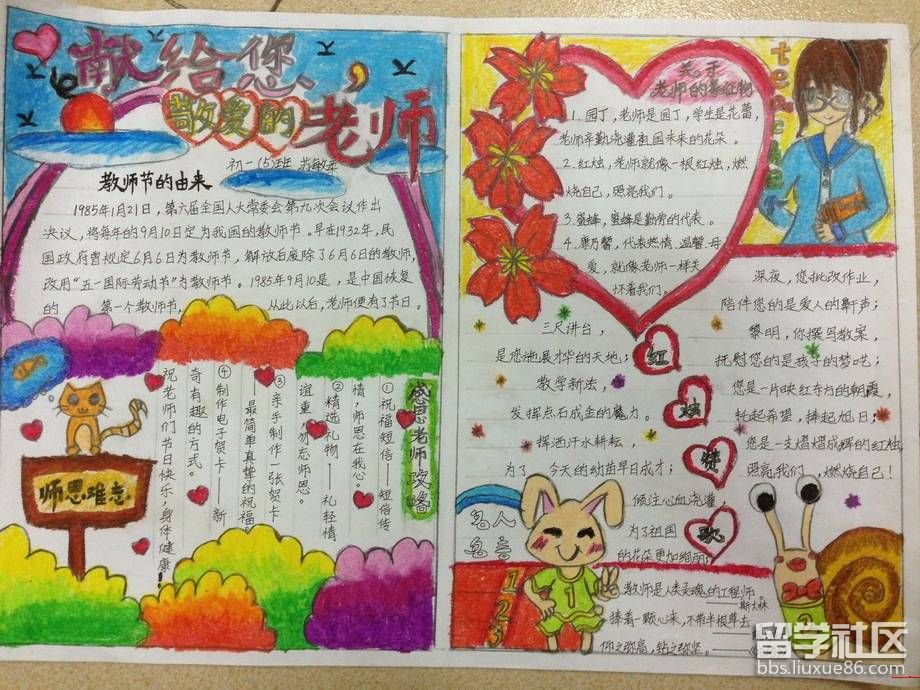 献给您、
敬爱的老师
初一(5)班
教师节的由来
1985年1月21日，第六届全国人大常委会第九次会议作出
决议，将每年的9月10日定为我国的教师节。早在1932年，民
国政府曾规定6月6日为教师节，解放后废除了6月6日的教师节，
改用“五一国际劳动节”为教师节。1985年9月10是，是中国恢复
的 第一个教师节， 从此以后，老师便有了节日。
感恩老师攻略
①祝福短信——短信传
情，师恩在我心。
②精选礼物——礼轻情
谊重，勿忘师恩。
③亲手制作一张贺卡
——最简单真挚的祝福
④制作电子贺卡——新
奇有趣的方式。
祝老师们节日快乐，身体健康！
师恩难忘
关于
老师的象征物
1.园丁，老师是园丁，学生是花蕾，
老师辛勤浇灌祖国未来的花朵。
2.红烛，老师就像一根红烛，燃
烧自己，照亮我们。
3.蜜蜂，蜜蜂是勤劳的代表。
4.康乃馨，代表热情，温馨，母
爱，就像老师一样关
怀着我们。
三尺讲台，
是您施展才华的天地；
教学新法，
发挥点石成金的魔力。
挥洒汗水耕耘，
为了 今天的幼苗早日成才；
倾注心血浇灌，
为了祖国
的花朵更加绚丽；
红
烛
赞
歌
深夜，您批改作业，
陪伴您的是爱人的鼾声；
黎明，你撰写教案，
抚慰您的是孩子的梦呓；
您是一片映红东方的朝霞
托起希望，捧起旭日；
您是一支熠熠成辉的红烛，
照亮我们，燃烧自己！
名人
名言
1
2
3
1
教师是人类灵魂的工程师。
——斯大林
捧着一颗心来，不带半根草去
仰之弥高，钻之弥坚。
留学社区
bbs.liuxue86.com